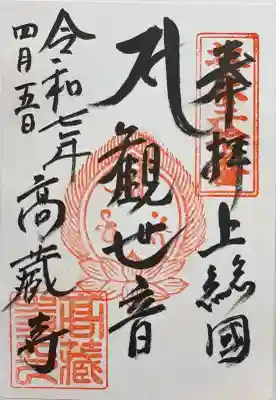 奉拝
上総國
観世音
高蔵寺
令和七年
四月五日
高蔵